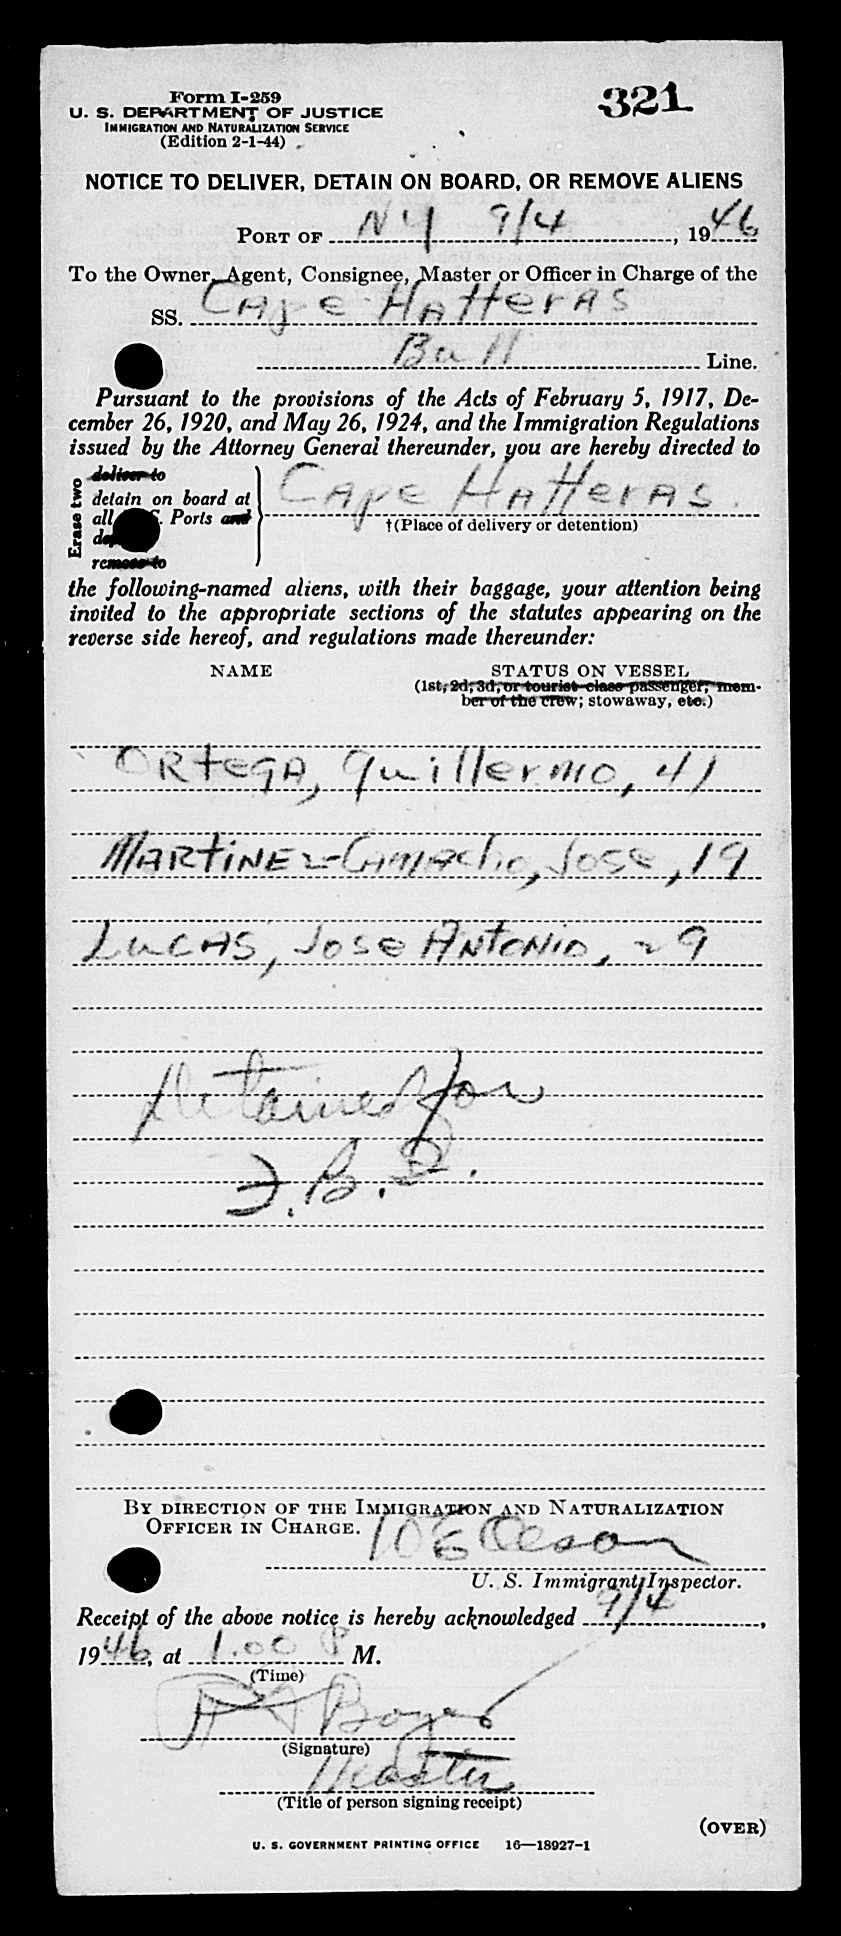 Form I-259
321
U. S. DEPARTMENT OF JUSTICE
IMMIGRATION AND NATURALIZATION SERVICE
(Edition 2-1-44)
NOTICE TO DELIVER, DETAIN ON BOARD, OR REMOVE ALIENS
PORT OF NY 9/4, 1946
To the Owner, Agent, Consignee, Master or Officer in Charge of the
SS. Cape Hatteras
Bull Line.
Pursuant to the provisions of the Acts of February 5, 1917, De-
cember 26, 1920, and May 26, 1924, and the Immigration Regulations
issued by the Attorney General thereunder, you are hereby directed to
Erase two
deliver to
detain on board at
all S. Ports and
remove to
Cape Hatteras.
†(Place of delivery or detention)
the following-named aliens, with their baggage, your attention being
invited to the appropriate sections of the statutes appearing on the
reverse side hereof, and regulations made thereunder:
NAME STATUS ON VESSEL
(1st, 2d, 3d, or tourist class passenger, mem-
ber of the crew; stowaway, etc.)
ORtegA, Guillermo, 41
MARtiNEz-CamAcho, Jose, 19
LucAS, Jose ANtoNio, 29
Detained for
F.B.I.
BY DIRECTION OF THE IMMIGRATION AND NATURALIZATION
OFFICER IN CHARGE.
Olson
U. S. Immigrant Inspector.
Receipt of the above notice is hereby acknowledged 9/4,
1946, at 1.00 P M.
(Time)
Boyer
(Signature)
Master
(Title of person signing receipt)
(OVER)
U. S. GOVERNMENT PRINTING OFFICE 16—18927-1